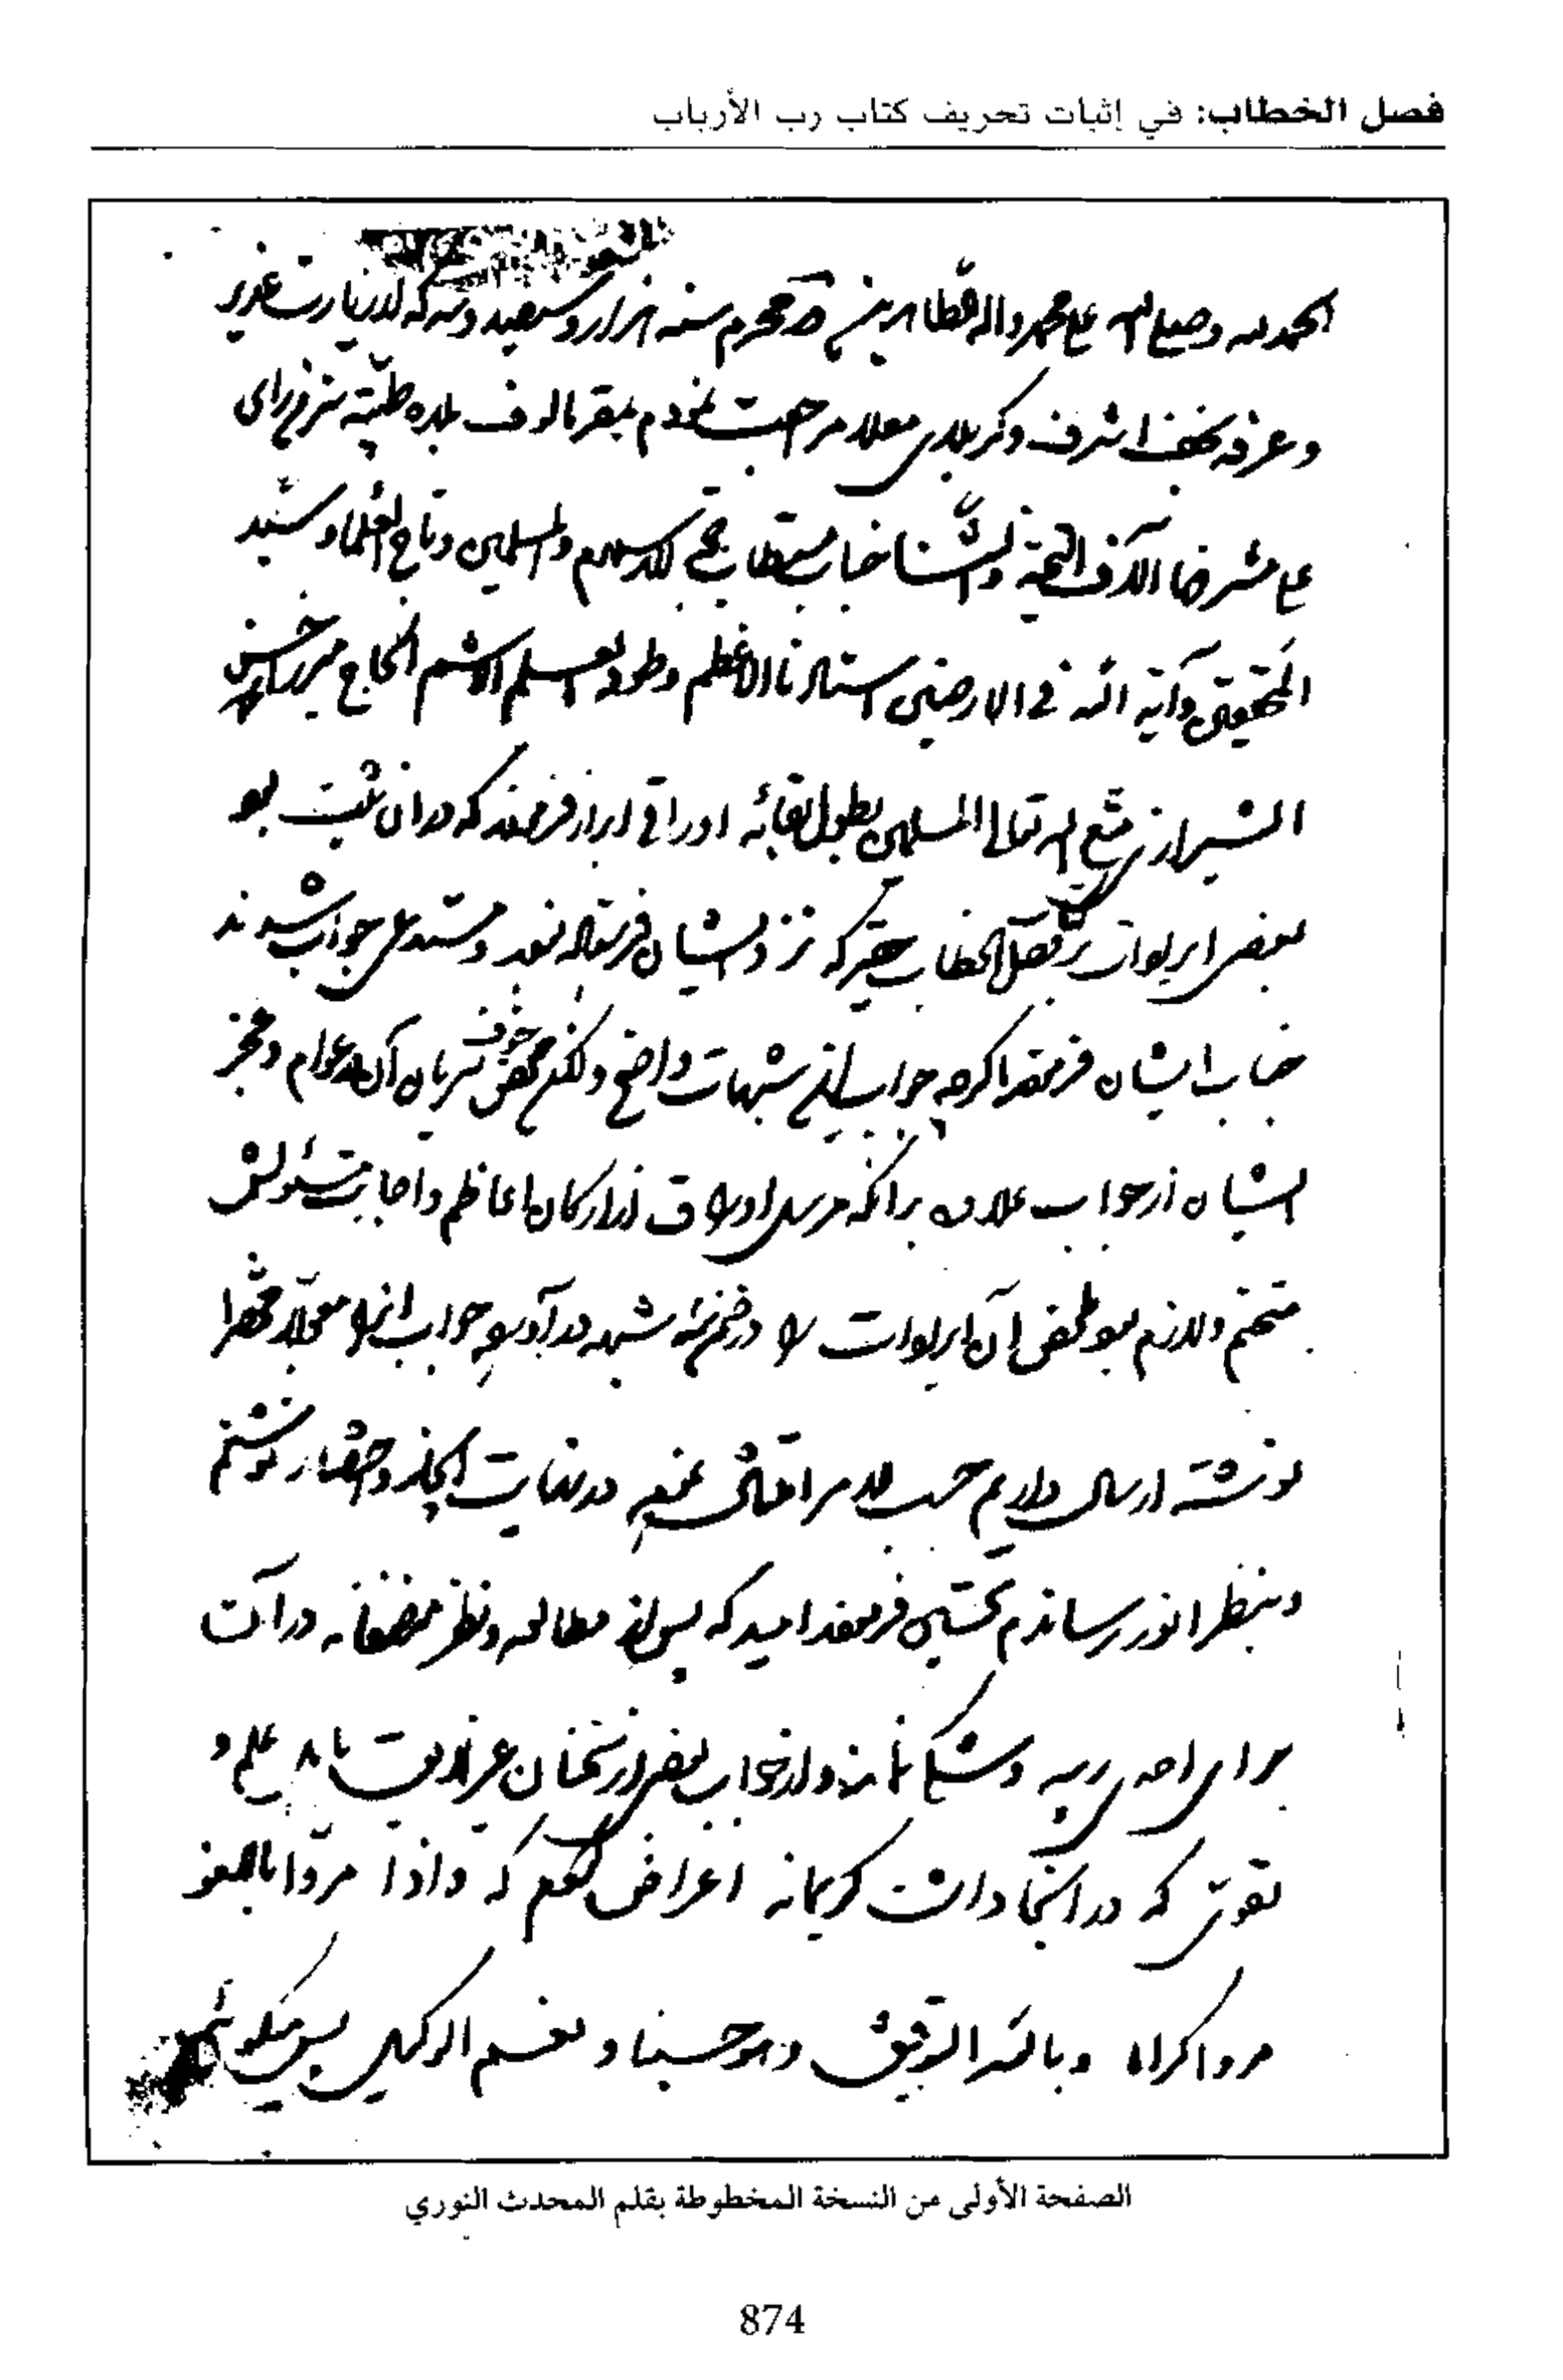 فصل الخطاب: في إثبات تحريف كتاب رب الأرباب
الحمد لله وصلى الله على محمد وآله الطاهرين در محرم سنه هزار و سیصد و سه که از زیارت غدیر
وعرفه نجف اشرف و کربلای معلا مراجعت نمودم بمقر مألوف بلده طیبه سر من رای
علی مشرفها آلاف التحیة والثنا جناب مستطاب حجة الاسلام والمسلمین وتاج العلماء وسید
المحققین وآیة الله فی الارضین استادنا الاعظم وطود العلم الاشم الحاج میرزا محمد حسن
الشیرازی متع الله تعالی المسلمین بطول بقائه اوراقی ابراز فرمودند که در آن ثبت بود
بعضی ایرادات بر کتاب فصل الخطاب حقیر که نزد ایشان فرستاده بودند و مستدعی جواب شدند
جناب ایشان فرمودند اگرچه جواب این شبهات واضح ولکن محض خوف سریان آن در عوام و عجز
ایشان از جواب علاوه بر آنکه مرسل اوراق از ارکان اعاظم و اجابت مسئولش
متحتم و لازم بود ملخص آن ایرادات را در ضمن سه شبهه در آورده جواب آنها را معجلا مختصرا
نوشته ارسال داریم حسب الامر امتثال نموده در نهایت ایجاز و اختصار نوشتم
و بنظر انور رساندم تحسین فرمودند امید که پس از مطالعه و نظر منصفانه در آن
برای احدی ریبه و شکی نماند و از جناب
تقوی که در آنجا دأبش کریمانه اعراض کنم که واذا مروا باللغو
مروا کراما وبالله التوفیق وهو حسبنا ونعم الوکیل پس میگوئیم
الصفحة الأولى من النسخة المخطوطة بقلم المحدث النوري
874